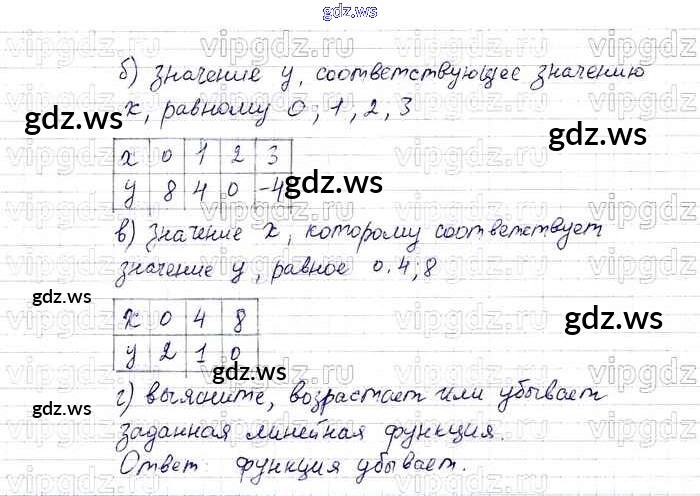 gdz.ws
vipgdz.ru vipgdz.ru vipgdz.ru
б) значение y, соответствующее значению
x, равному 0; 1, 2, 3
gdz.ws gdz.ws
x 0 1 2 3
y 8 4 0 -4
gdz.ws
в) значение x, которому соответствует
значение y, равное 0. 4; 8
gdz.ws
x 0 4 8
y 2 1 0
gdz.ws
gdz.ws
г) выясните, возрастает или убывает
gdz.ws
заданная линейная функция.
Ответ: функция убывает.
gdz.ws